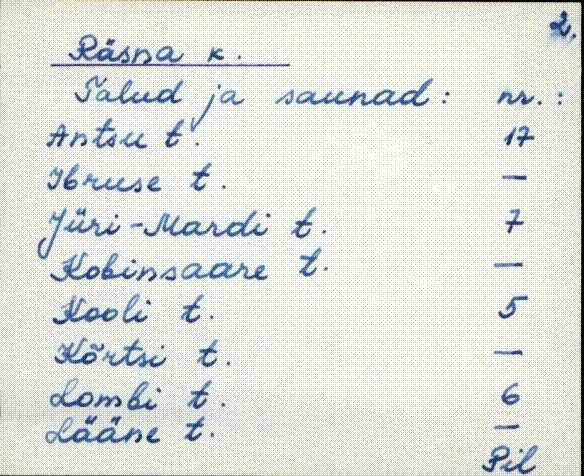 2.
Räsna k.
Talud ja saunad: nr.:
Antsu t. 17
Ibruse t. —
Jüri-Mardi t. 7
Kobinsaare t. —
Kooli t. 5
Kõrtsi t. —
Lombi t. 6
Lääne t. —
Pil